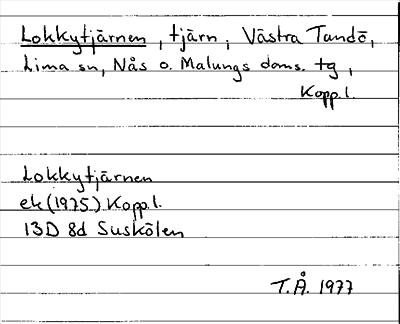 Lokkytjärnen, tjärn, Västra Tandö,
Lima sn, Nås o. Malungs doms. tg,
Kopp.l.
Lokkytjärnen
ek (1975) Kopp.l.
13D 8d Suskölen
T.Å. 1977